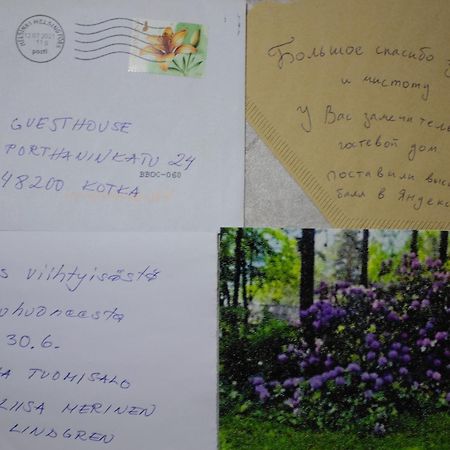 HELSINKI HELSINGFORS
12.07.2021
posti
GUESTHOUSE
PORTHANINKATU 24
48200 KOTKA
BBOC-060
Большое спасибо
и чистоту
У Вас
гостевой дом
поставили
балл в
viihtyisästä
30.6.
TUOMISALO
LIISA MERINEN
LINDGREN